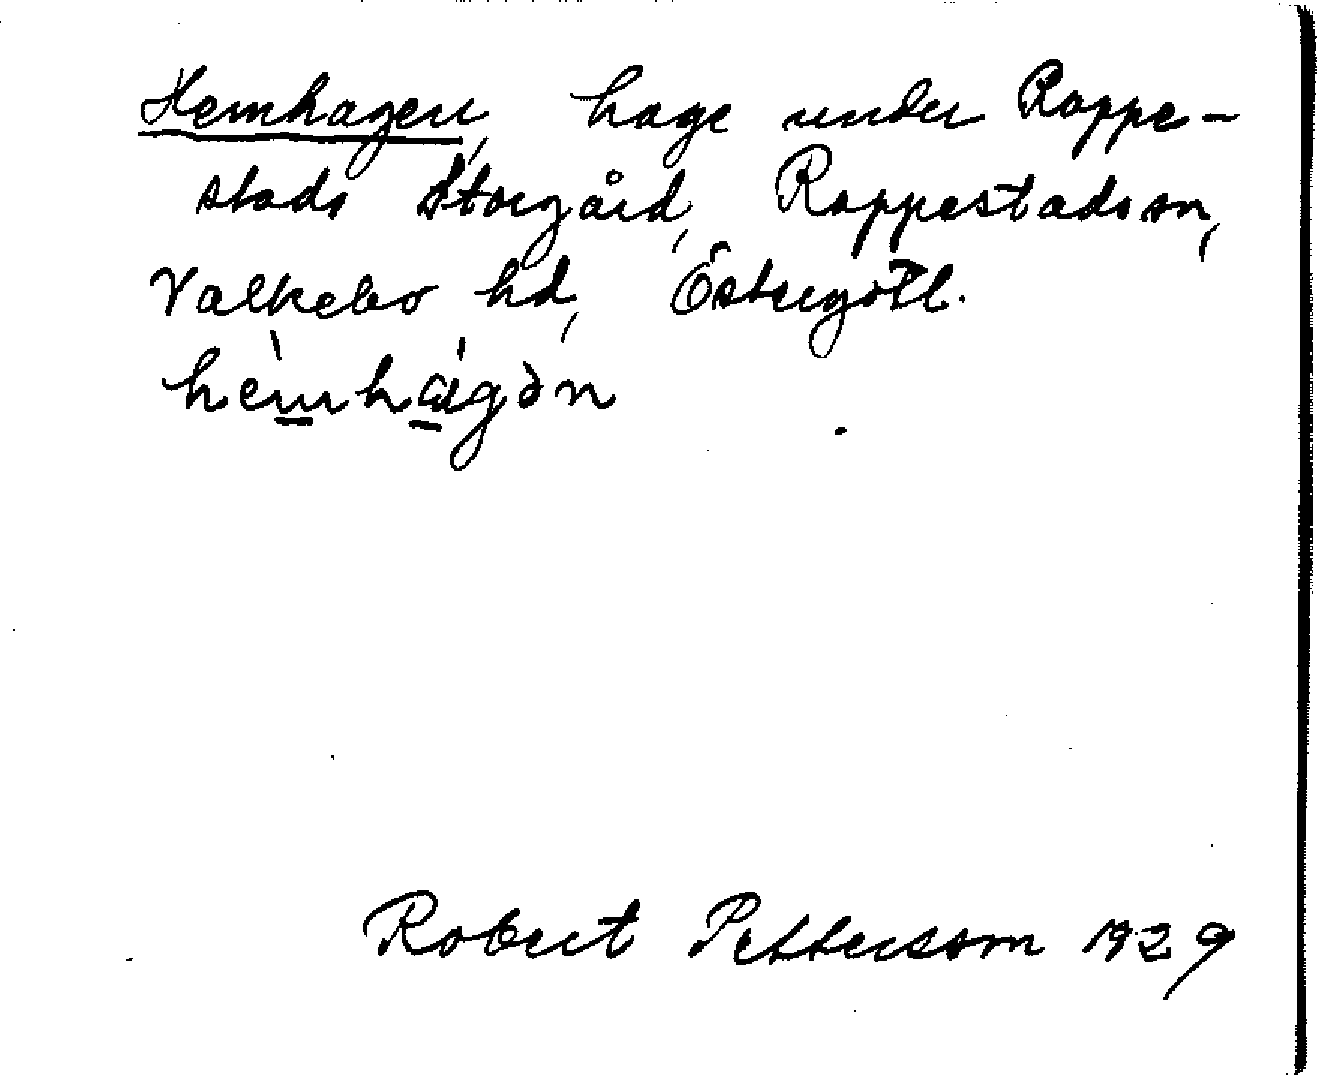 Hemhagen, hage under Rappe-
stads Storgård, Rappestads sn,
Valkebo hd, Östergötl.
hèmhágən
Robert Pettersson 1929